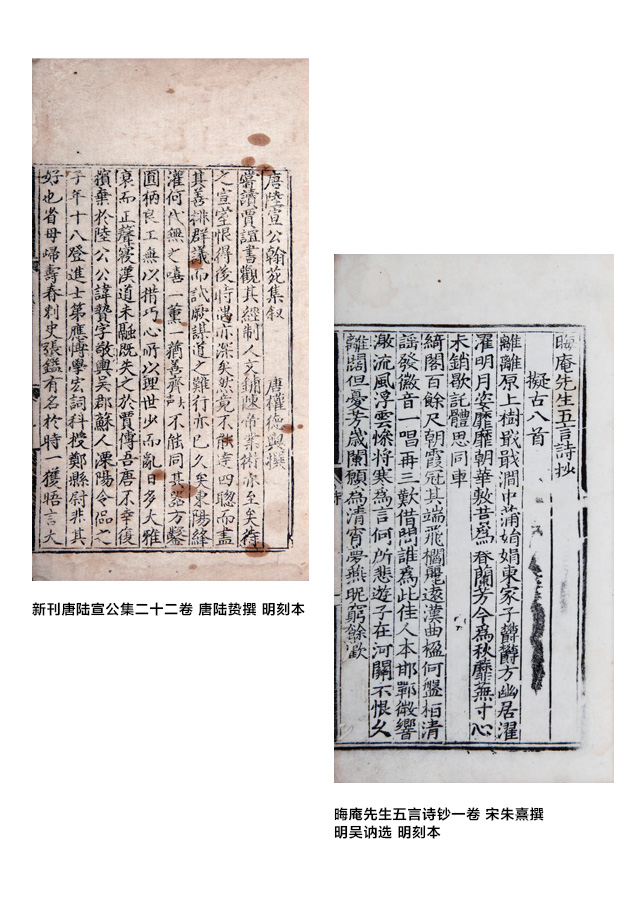 唐陸宣公翰苑集叙　唐權德輿撰
嘗讀賈誼書觀其經制人文鋪陳帝業術亦至矣待
之宣室恨得後時遇亦深矣然竟不能達四聰而盡
其善排群議而試厥謀道之難行亦已久矣東陽絳
灌何代無之嘻一薰一蕕善齊不能同其器方鑿
圓枘良工無以措巧心所以理世少而亂日多大雅
衰而正聲寢漢道未融既失之於賈傅吾唐不幸復
擯棄於陸公公諱贄字敬輿吳郡蘇人溧陽令偘之
子年十八登進士第應博學宏詞科授鄭縣尉非其
好也省母歸壽春刺史張鎰有名於時一獲晤言大
新刊唐陆宣公集二十二卷 唐陆贽撰 明刻本
晦庵先生五言詩抄
擬古八首
離離原上樹戢戢澗中蒲始娟東家子鬱鬱方幽居濯
濯明月姿靡靡朝華敷昔為春蘭芳今為秋蘼蕪寸心
未銷歇託體思同車
綺閣百餘尺朝霞冠其端飛櫩麗遠漢曲楹何盤桓清
謡發徽音一唱再三歎借問誰為此佳人本邯鄲微響
激流風浮雲慘將寒為言何所悲遊子在河關不恨久
離闊但憂芳歲闌願為清宵夢無眠窮餘歡
晦庵先生五言诗钞一卷 宋朱熹撰
明吴讷选 明刻本